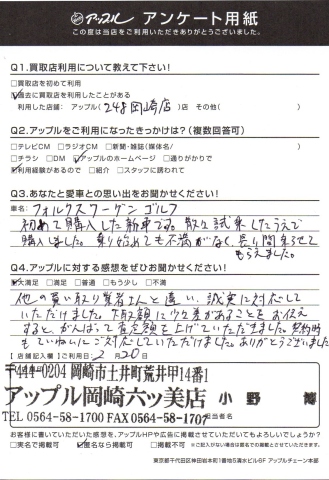 アップル アンケート用紙
この度は当店をご利用いただきありがとうございました。
Q1.買取店利用について教えて下さい!
□買取店を初めて利用
☑過去に買取店を利用したことがある
利用した店舗: アップル(248岡崎店)店 その他( )
Q2.アップルをご利用になったきっかけは?(複数回答可)
□テレビCM □ラジオCM □新聞・雑誌(媒体名/ )
□チラシ □DM ☑アップルのホームページ □通りがかりで
☑利用経験があるので □紹介 □スタッフに誘われて
Q3.あなたと愛車との思い出をお聞かせください!
車名: フォルクスワーゲン ゴルフ
初めて購入した新車です。散々試乗したうえで
購入しました。乗り始めても不満がなく、長い間
もらえました。
Q4.アップルに対する感想をぜひお聞かせください!
☑大満足 □満足 □普通 □もう少し □不満
他の買い取り業者さんと違い、誠実に対応して
いただけました。下取額に少し差があることをお伝え
すると、がんばって査定額を上げていただきました。契約時
もていねいにご対応していただけました。ありがとうございました
【店舗記入欄】ご利用日: 2月20日
〒444-0204 岡崎市土井町荒井甲14番1
アップル岡崎六ッ美店 小野 博
TEL 0564-58-1700 FAX 0564-58-1707
担当者名
お客様に書いていただいた感想を、アップルHPや広告に掲載させていただいてもよろしいでしょうか?
□実名で掲載可 ☑匿名なら掲載可 □掲載不可 ※ご記入がない場合は匿名での掲載とさせていただきます。
東京都千代田区神田岩本町1番地5清水ビル6F アップルチェーン本部